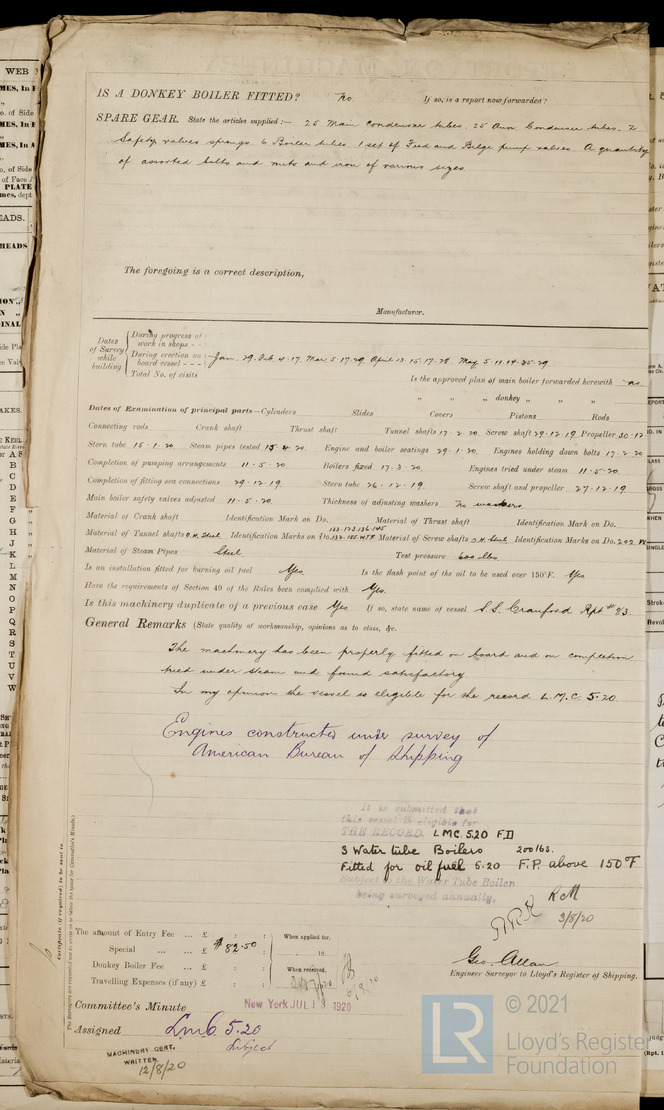 IS A DONKEY BOILER FITTED? No If so, is a report now forwarded?
SPARE GEAR. State the articles supplied:— 25 Main Condenser tubes. 25 Aux Condenser tubes. 2
Safety valves springs. 6 Boiler tubes. 1 set of Feed and Bilge pump valves. A quantity
of assorted bolts and nuts and iron of various sizes.
The foregoing is a correct description,
Manufacturer.
Dates of Survey while building
During progress of work in shops - -
During erection on board vessel - - - Jan. 29. Feb 4. 17. Mar 5 17. 29. April 13. 15. 17. 28. May 5. 11. 14. 25. 29
Total No. of visits
Is the approved plan of main boiler forwarded herewith no
" " " donkey " " "
Dates of Examination of principal parts—Cylinders Slides Covers Pistons Rods
Connecting rods Crank shaft Thrust shaft Tunnel shafts 17.2.20 Screw shaft 29.12.19 Propeller 30.12
Stern tube 15.1.20 Steam pipes tested 15.4.20 Engine and boiler seatings 29.1.20. Engines holding down bolts 17.2.20
Completion of pumping arrangements 11.5.20 Boilers fixed 17.3.20. Engines tried under steam 11.5.20.
Completion of fitting sea connections 29.12.19. Stern tube 26.12.19. Screw shaft and propeller 27.12.19
Main boiler safety valves adjusted 11.5.20 Thickness of adjusting washers No washers
Material of Crank shaft Identification Mark on Do. Material of Thrust shaft Identification Mark on Do.
Material of Tunnel shafts O.H. Steel Identification Marks on Do. Material of Screw shafts O.H. Steel Identification Marks on Do. 202
Material of Steam Pipes Steel Test pressure 600 lbs.
Is an installation fitted for burning oil fuel Yes Is the flash point of the oil to be used over 150°F. Yes
Have the requirements of Section 49 of the Rules been complied with Yes.
Is this machinery duplicate of a previous case Yes If so, state name of vessel S.S. Cranford Rpt # 83
General Remarks (State quality of workmanship, opinions as to class, &c.
The machinery has been properly fitted on board and on completion
tried under steam and found satisfactory
In my opinion the vessel is eligible for the record L.M.C. 5.20
Engines constructed under survey of
American Bureau of Shipping
It is submitted that
this vessel is eligible for
THE RECORD. LMC. 5.20 F.D
3 Water tube Boilers 200 lbs.
Fitted for oil fuel 5.20 F.P. above 150°F
Subject to the Water Tube Boiler
being surveyed annually.
RCM
3/8/20
Certificate (if required) to be sent to
(The Surveyors are requested not to write on or below the space for Committee's Minute.)
The amount of Entry Fee ... £ : : When applied for,
Special ... ... £ $ 82.50 19
Donkey Boiler Fee ... £ : : When received,
Travelling Expenses (if any) £ : :
Geo. Allan
Engineer Surveyor to Lloyd's Register of Shipping.
Committee's Minute New York JUL 1920
Assigned L.M.C. 5.20
Subject
MACHINERY CERT.
WRITTEN
12/8/20
LR © 2021
Lloyd's Register
Foundation